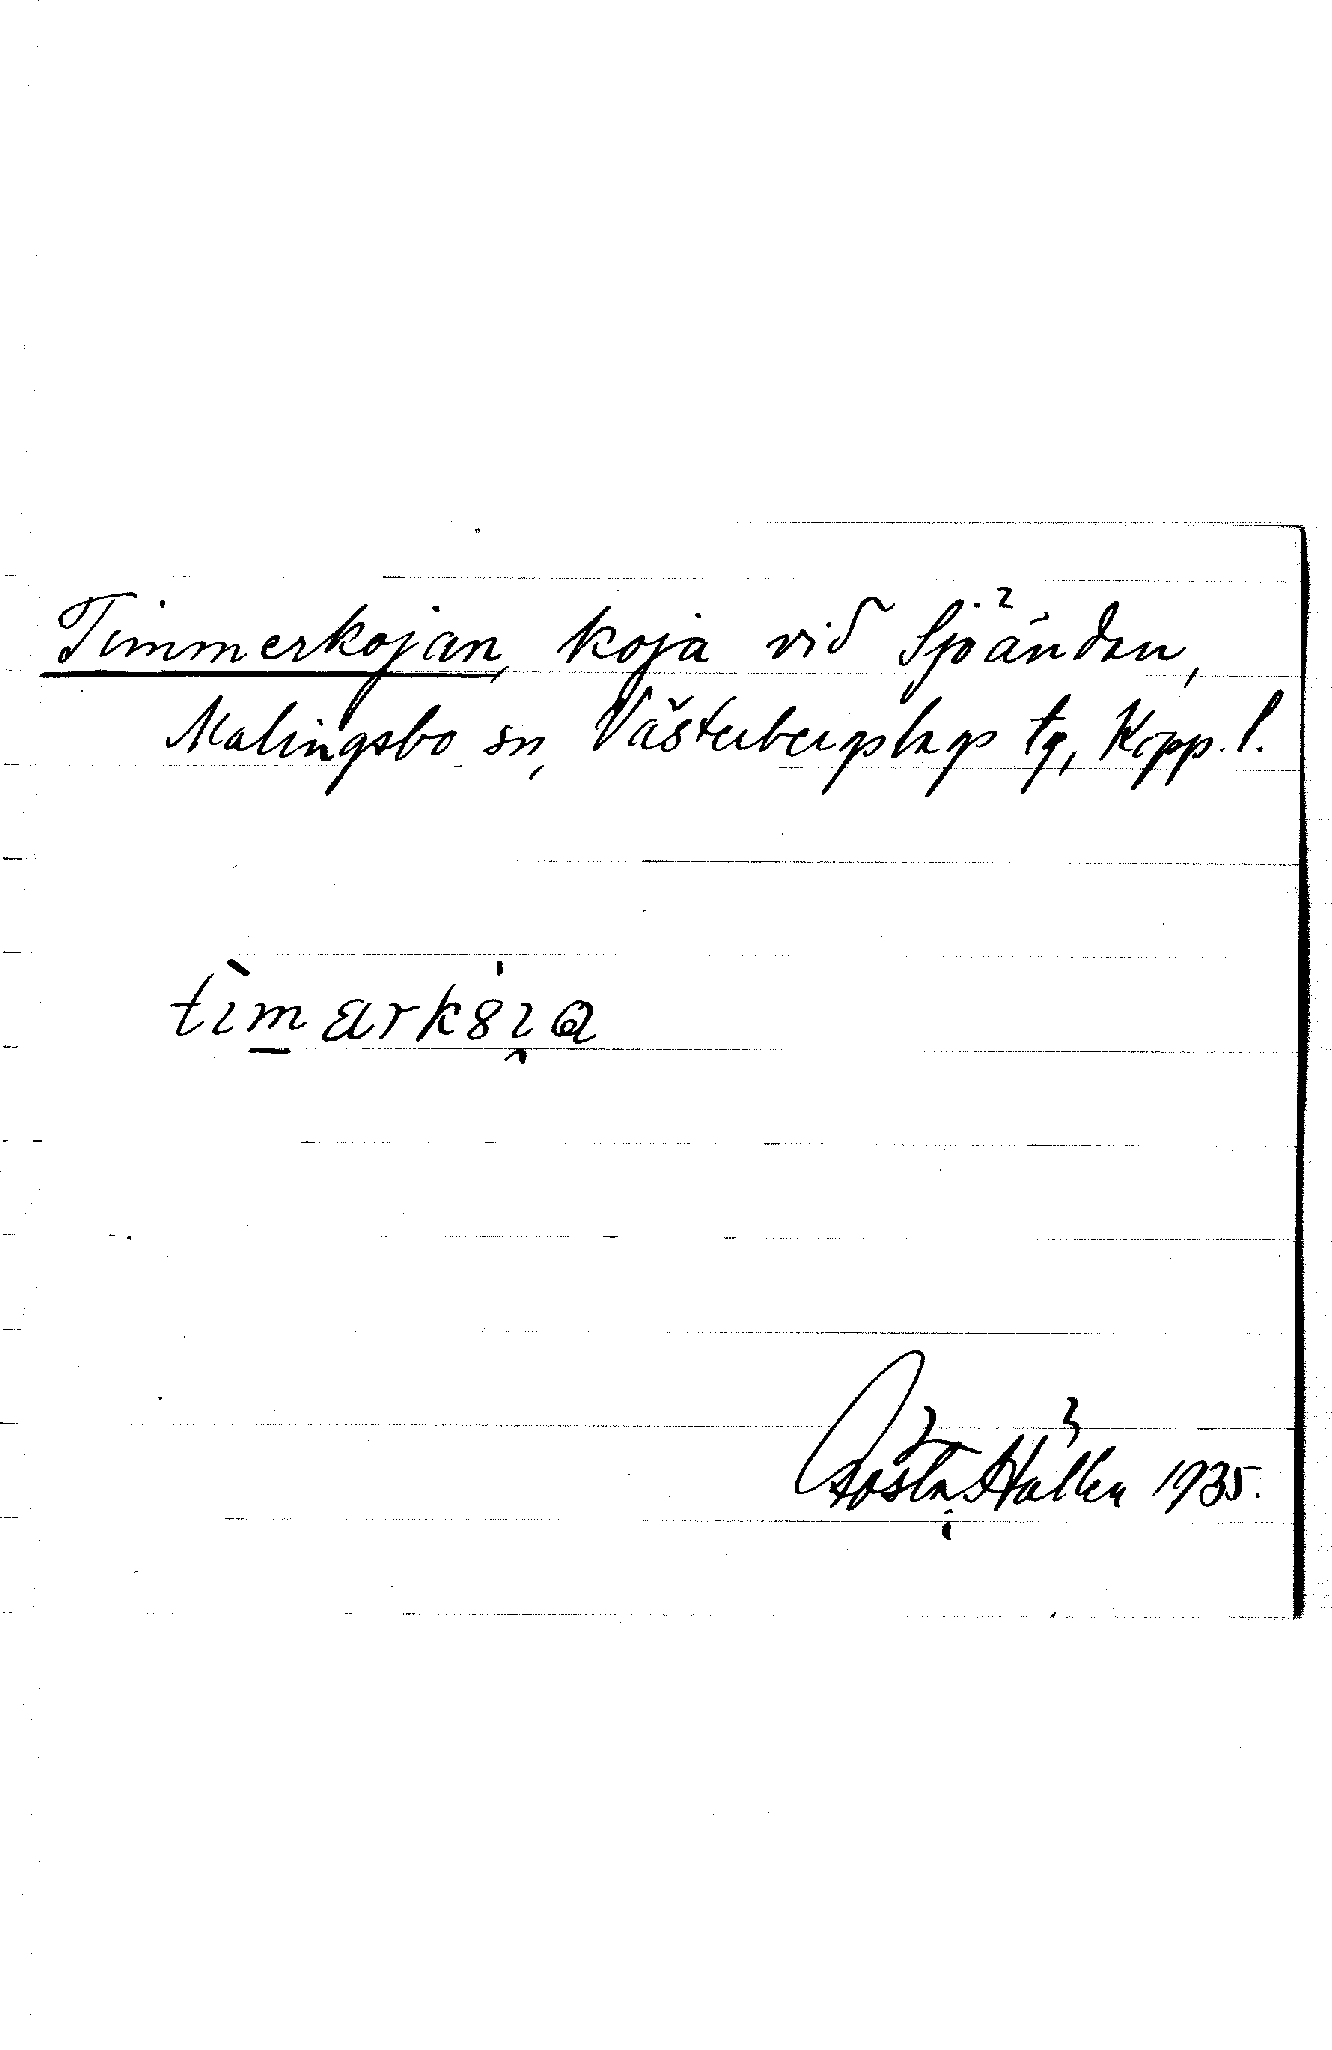 Timmerkojan, koja vid Sjöändan,
Malingsbo sn, Västerbergslags tg, Kopp. l.
Gösta Hállén 1935.